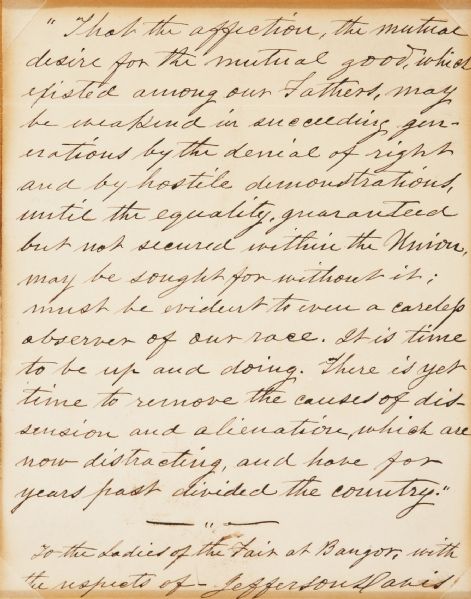 "That the affection, the mutual
desire for the mutual good, which
existed among our Fathers, may
be weakend in succeeding gen-
erations by the denial of right
and by hostile demonstrations,
until the equality, guaranteed
but not secured within the Union,
may be sought for without it;
must be evident to even a careless
observer of our race. It is time
to be up and doing. There is yet
time to remove the causes of dis-
sension and alienation, which are
now distracting, and have for
years past divided the country."
To the Ladies of the Fair at Bangor, with
the respects of - Jefferson Davis